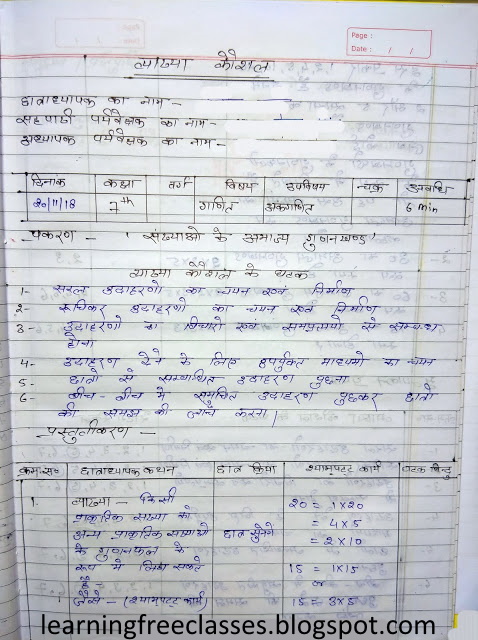 Page :
Date : / /
Page :
Date : / /
व्याख्या कौशल
छात्राध्यापक का नाम -
सहपाठी पर्यवेक्षक का नाम -
अध्यापक पर्यवेक्षक का नाम -
दिनांक कक्षा वर्ग विषय उपविषय चक्र अवधि
20/11/18 7th गणित अंकगणित 6 min
प्रकरण - 'संख्याओ के अभाज्य गुणनखण्ड'
व्याख्या कौशल के घटक
1- सरल उदाहरणो का चयन एवं निर्माण
2- रूचिकर उदाहरणो का चयन एवं निर्माण
3- उदाहरणो का विचारो एवं सम्प्रत्ययो से सम्बन्ध
होना
4- उदाहरण देने के लिए उपर्युक्त माध्यमो का चयन
5- छात्रो से सम्बन्धित उदाहरण पुछना
6- बीच-बीच मे समुचित उदाहरण पुछकर छात्रो
की समझ की जाँच करना।
प्रस्तुतीकरण -
क्रम.सं० छात्राध्यापक कथन छात्र क्रिया श्यामपट्ट कार्य घटक बिन्दु
1. व्याख्या - किसी 20 = 1×20
प्राकृतिक संख्या को = 4×5
अन्य प्राकृतिक संख्याओ छात्र सुनेगे = 2×10
के गुणनफल के
रूप मे लिख सकते 15 = 1×15
है - or
जैसे - (श्यामपट्ट कार्य) 15 = 3×5
learningfreeclasses.blogspot.com